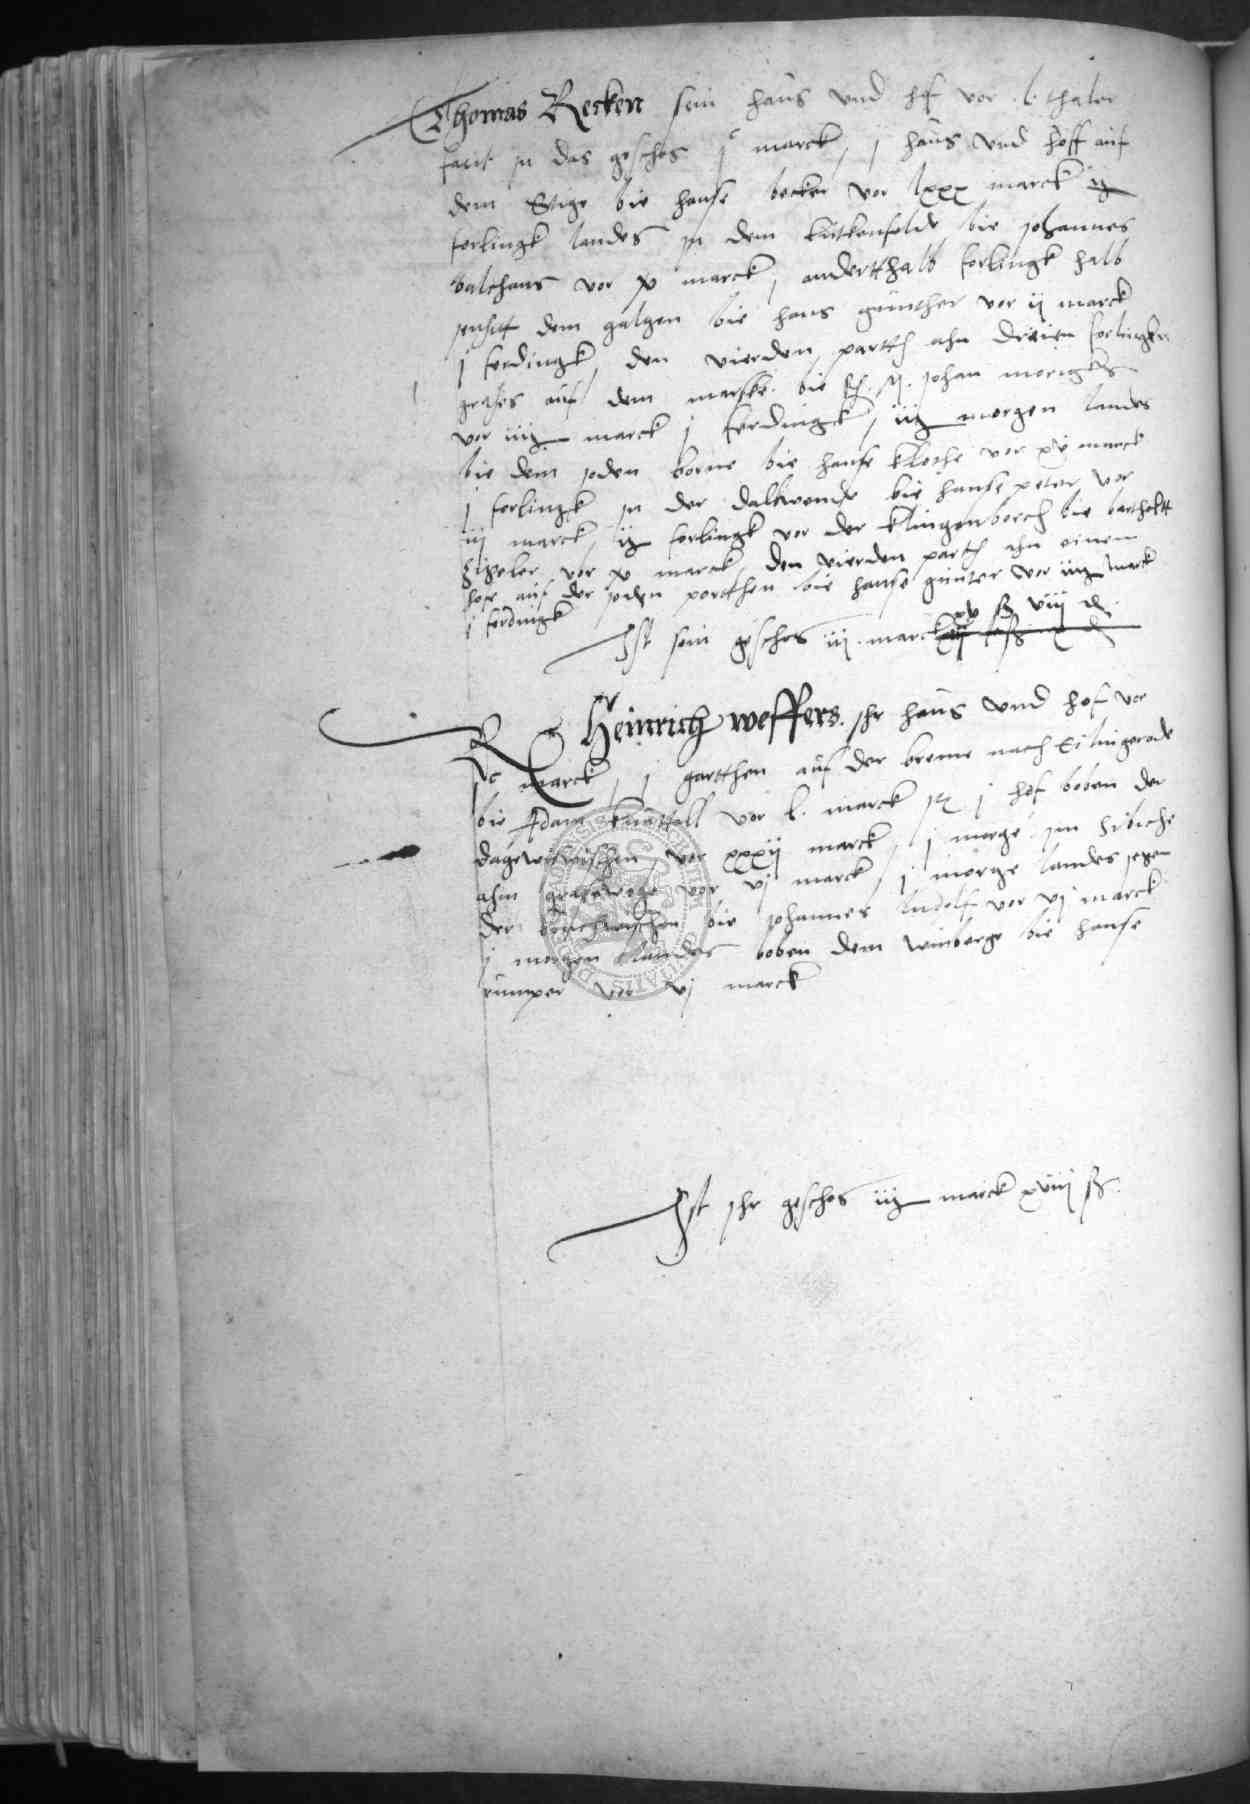 Thomas Recken sein haus und hof vor l thaler
facit in das geschos jc marck, j haus und hoff auf
dem Stige bie hanse becker vor lxxx marck ij
forlingk landes in dem kutkenfelde bie johannes
balthans vor xv marck, anderthalb forlingk halb
jensitt dem galgen bie hans günther vor ij marck
j ferdingk, den vierden partth ahn dreien forlingken
grases auf dem marske bie johan moringks
vor iiij marck j ferdingk, iij morgen landes
bie dem joden borne bie hanse klothe vor xv marck
j forlingk in der dalwende bie hanse peter vor
iij marck, ij forlingk vor der klingenborch bie bartheltt
zigeler vor xv marck, den vierden partth ahn einem
hofe auf der joden portthen bie hanse günter vor iiij marck
j ferdingk
xv ß viij d
Ist sein geschos iij marck
Heinrich weffers ihr haus und hof vor
jc marck, j gartthen auf der breme nach Eilingerode
bie Adam knuttell vor l marck j hof boben der
dagewischen vor xxxij marck, j morge im
ahm grasewege vor vj marck, j morge landes jegen
der wischen bie johannes ludolf vor vj marck
j morgen landes boben dem winberge bie hanse
rümper vor vj marck
Ist ihr geschos iij marck xviij ß